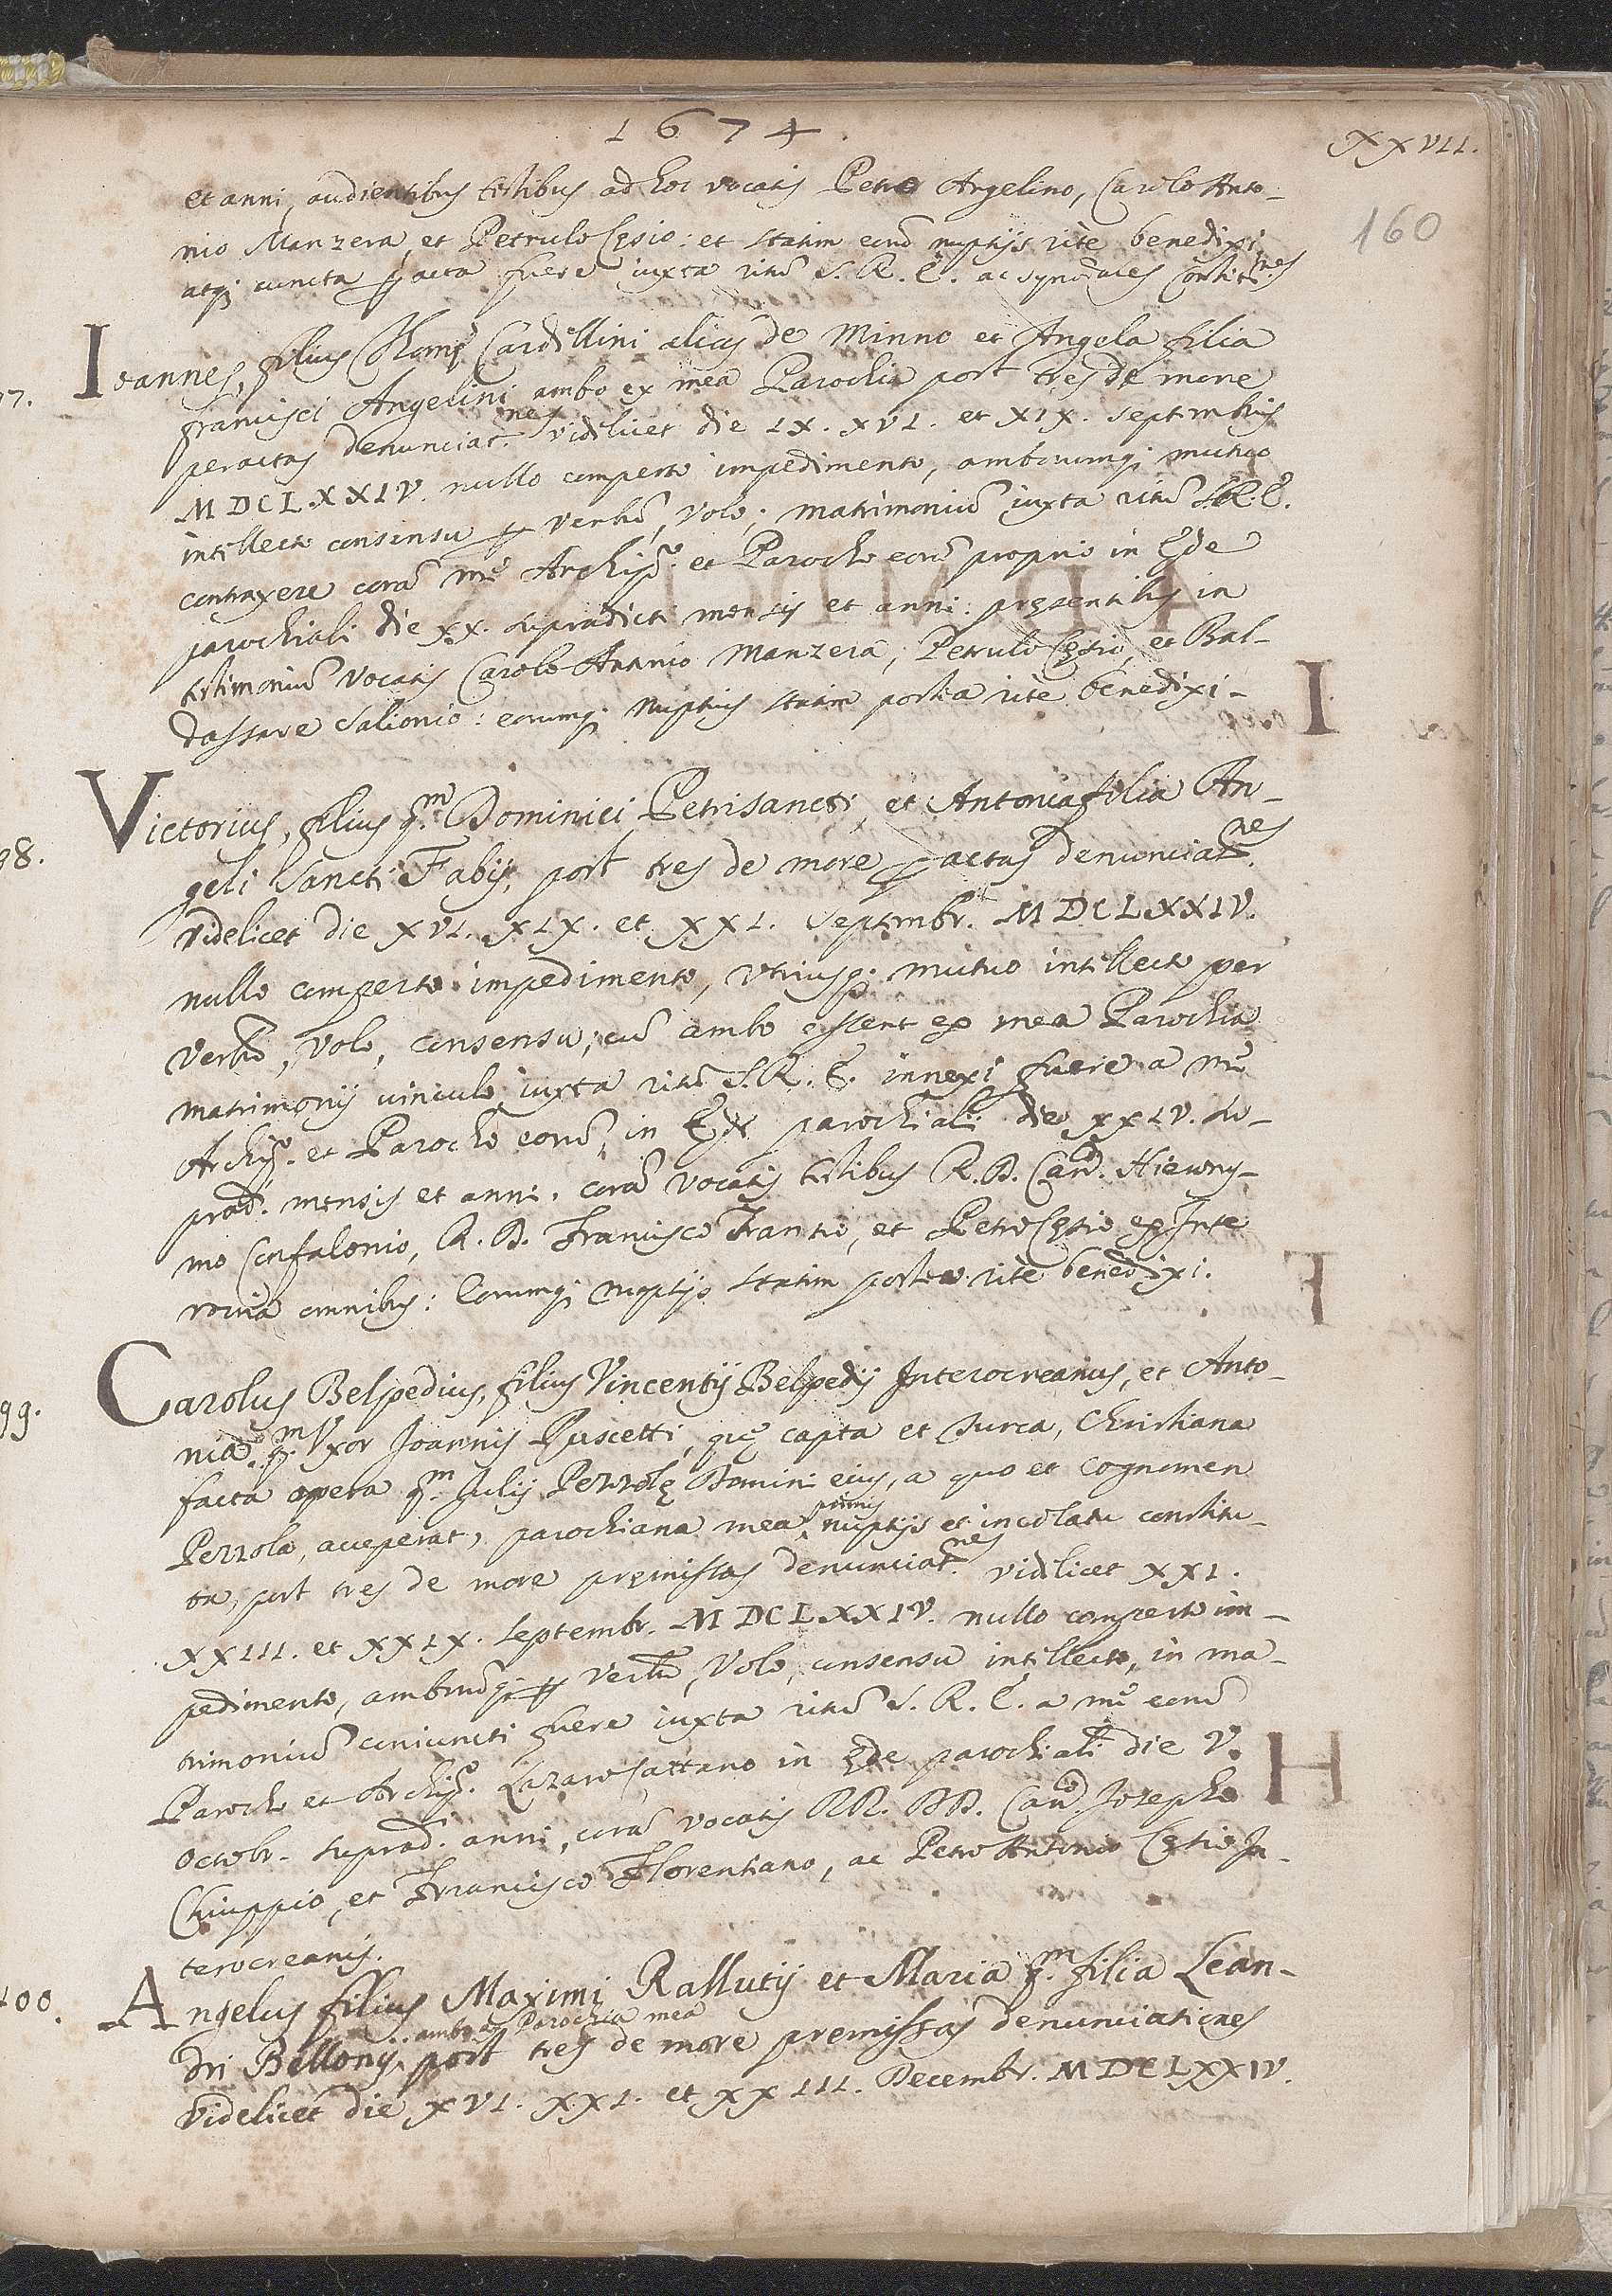 1674.
XXVII.
160
et anni, audientibus testibus ad hoc vocatis Petro Angelino, Carolo Anto-
nio Manzera, et Petrulo Cęsio: et statim eorū nuptijs ritè benedixi
atq; cuncta pacta fuere iuxta ritū S. R. E. ac synodales Constit.nes
97.
Ioannes, filius Thomę Cardillini alias de Minno et Angela filia
francisci Angelini ambo ex mea Parochia post tres de more
peractas denunciat.nes videlicet die IX. XVI. et XIX. septembris
MDCLXXIV. nullo comperto impedimento, amborumq; mutuo
intellecto consensu p verbū, volo; matrimoniū iuxta ritū S.R.E.
contraxere corā me Archipo. et Parocho eorū proprio in Ęde
parochiali die XX. supradicti mensis et anni: pręsentibus in
testimoniū vocatis Carolo Antonio Manzera, Petrulo Cęsio, et Bal-
dassare Salionio: eorumq; nuptijs statim postea ritè benedixi-
98.
Victorius, filius q.m Dominici Petrisancti, et Antonia filia An-
geli Sancti Fabij, post tres de more pactas denunciat.nes
videlicet die XVI. XIX. et XXI. septembr. MDCLXXIV.
nullo comperto impedimento, vtriusq; mutuo intellecto per
verbū, volo, consensu; cū ambo essent ex mea Parochia
matrimonij vinculo iuxta ritū S. R. E. innexi fuere a me
Archipo. et Parocho eorū, in Ęde parochiali die XXIV. su-
prad. mensis et anni. corā vocatis testibus R. D. Can.co Hierony-
mo Confalonio, R. D. Francisco Frantio, et Petro Cęsio ex Inte
rocria omnibus: Eorumq; nuptijs statim postea ritè benedixi.
99.
Carolus Belpedius, filius Vincentij Belpedij Interocreanus, et Anto-
nia q.m Vxor Joannis Puscetti, quę capta et Turca, Christiana
facta opera q.m Julij Perrolę Domini eius, a quo et cognomen
Perrola, acceperat, parochiana mea primis nuptijs et incolatu constitu-
ta, post tres de more pręmissas denunciat.nes videlicet XXI.
XXIII. et XXIX. septembr. MDCLXXIV. nullo comperto im-
pedimento, amborūq; p verbū, Volo, consensu intellecto, in ma-
trimoniū coniuncti fuere iuxta ritū S. R. E. a me eorū
Parocho et Archipo. Lazaro Cattano in Ęde parochiali die V.
octobr. suprad. anni, corā vocatis RR. DD. Can.co Josepho
Chiuppio, et Francisco Florentiano, ac Petro Antonio Cęsio In-
terocreanis.
100.
Angelus filius Maximi Rallutij et Maria q.m filia Lean-
ambo ex Parochia mea
dri Bellonij post tres de more premissas denunciationes
videlicet die XVI. XXI. et XXIII. Decembr. MDCLXXIV.